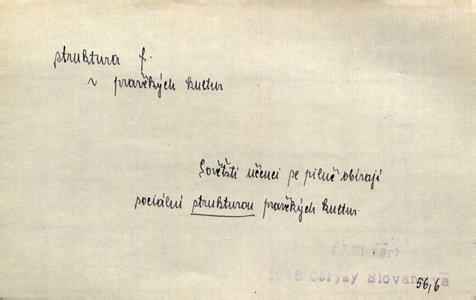 struktura f.
v pravěkých kultur
Sovětští učenci se pilně obírají
sociální strukturou pravěkých kultur
Obrysy Slovanstva
56,6